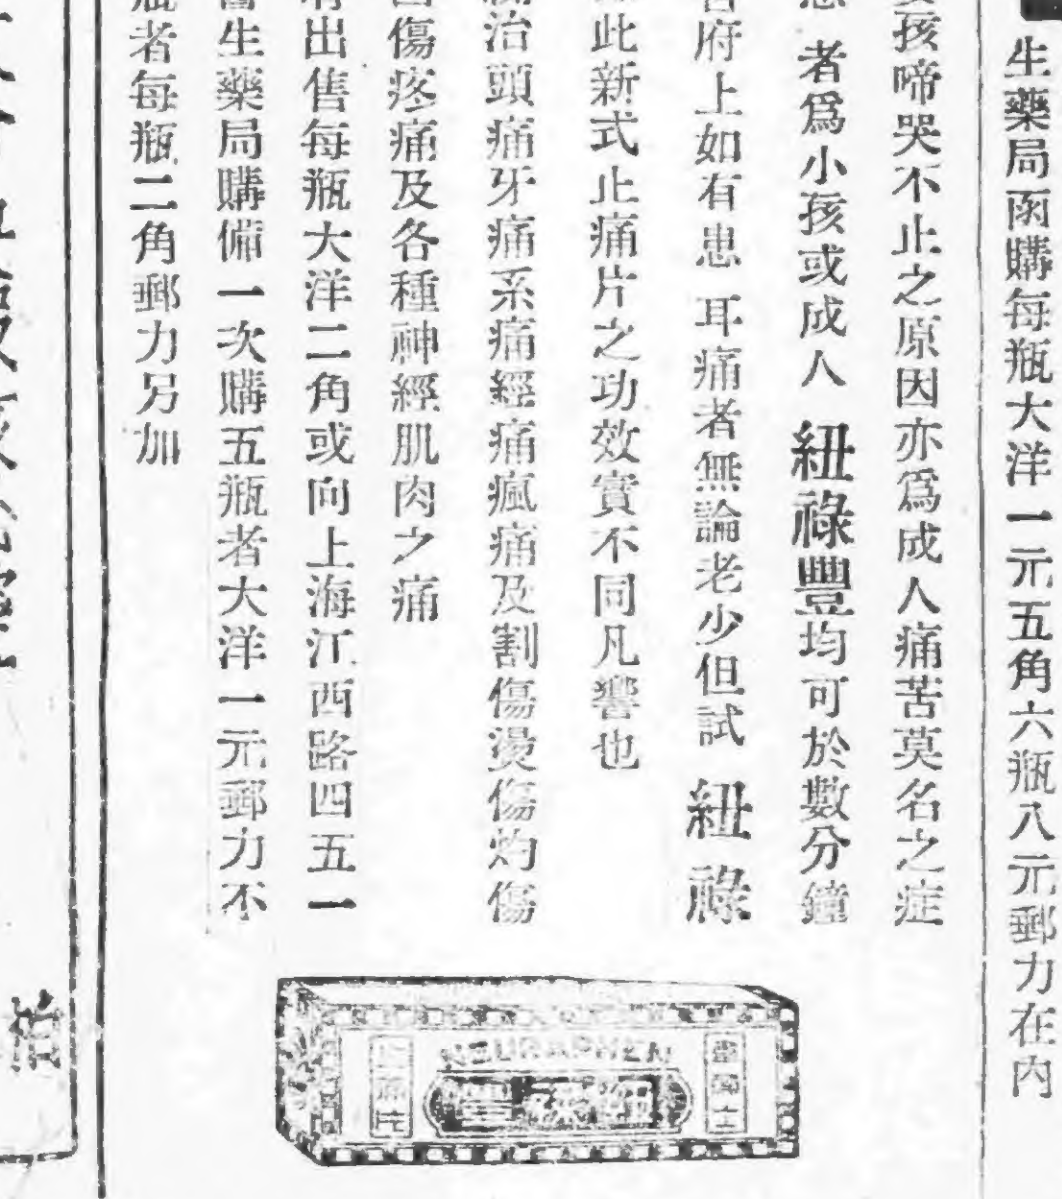 生藥局函購每瓶大洋一元五角六瓶八元郵力在內
孩啼哭不止之原因亦爲成人痛苦莫名之症
者爲小孩或成人 紐祿豐均可於數分鐘
府上如有患 耳痛者無論老少但試 紐祿
此新式止痛片之功效實不同凡響也
治頭痛牙痛系痛經痛瘋痛及割傷燙傷灼傷
傷疼痛及各種神經肌肉之痛
出售每瓶大洋二角或向上海江西路四五一
生藥局購備一次購五瓶者大洋一元郵力不
者每瓶二角郵力另加
NEURAPHEN
紐祿豐
止痛片